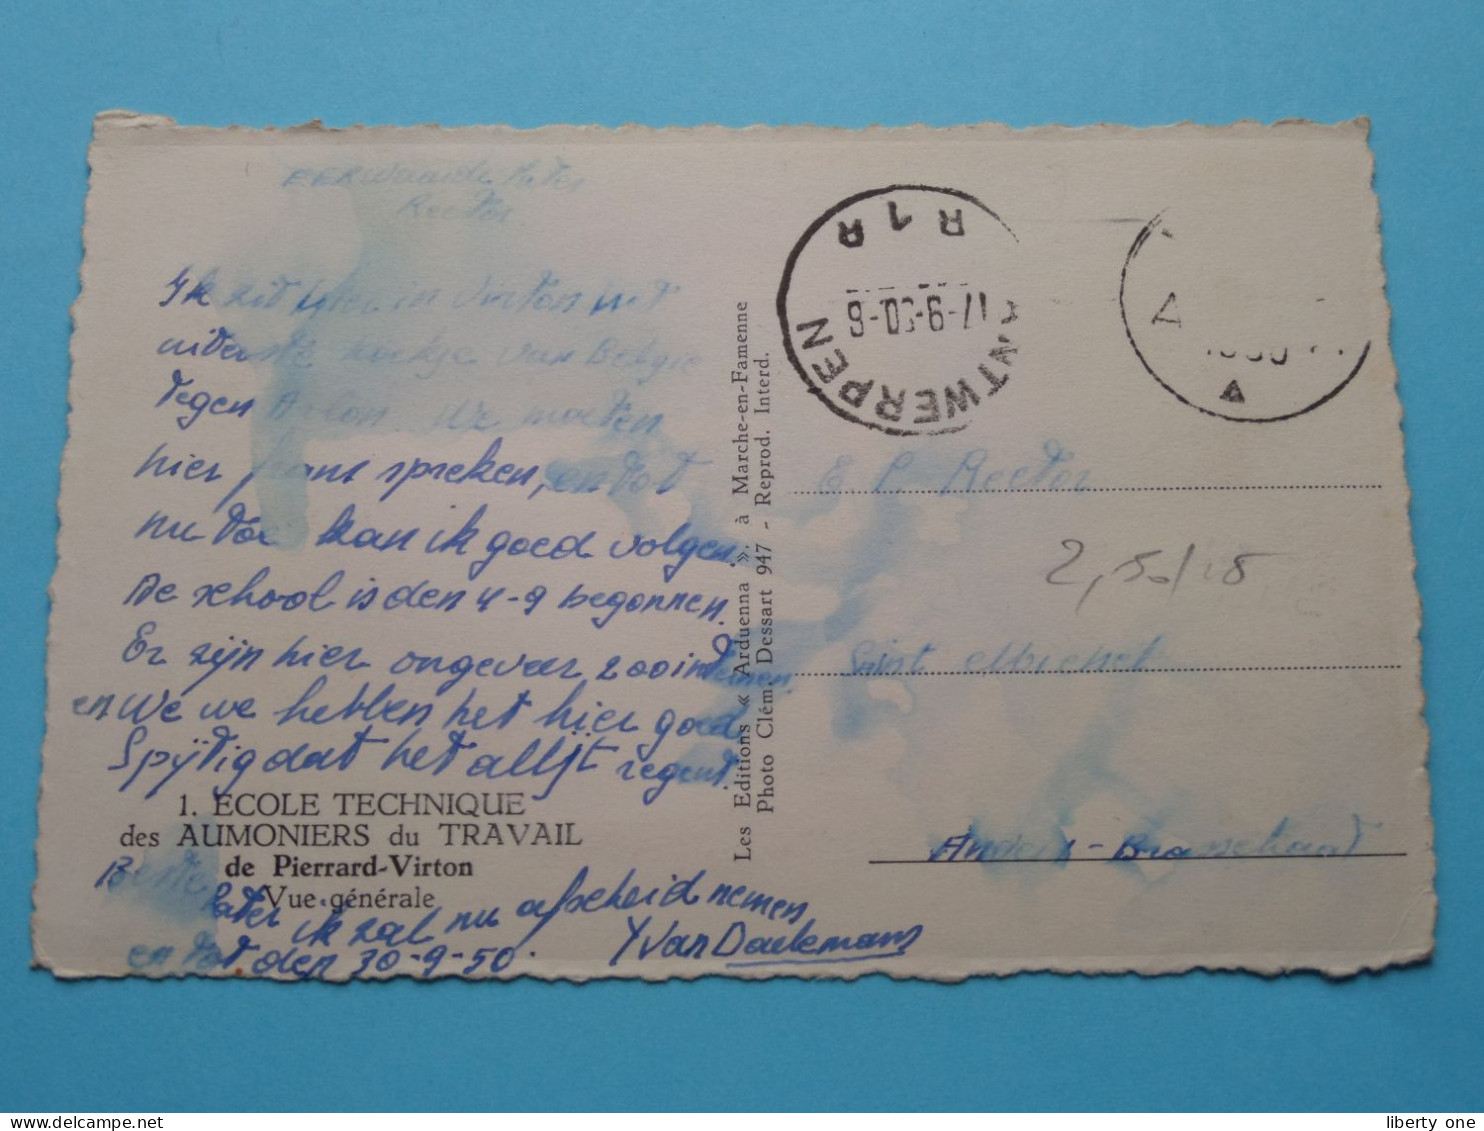 EERwaarde Pater
Rector
Ik zit hier in Virton het
uiterste hoekje van Belgie
tegen Arlon. We moeten
hier frans spreken, en tot
nu toe kan ik goed volgen.
De school is den 4-9 begonnen.
Er zijn hier ongeveer 200 internen.
en We we hebben het hier goed
Spijtig dat het altijt regent.
1. ÉCOLE TECHNIQUE
des AUMONIERS du TRAVAIL
de Pierrard-Virton
Vue générale
Beste
Pater ik zal nu afscheid nemen
en tot den 30-9-50.
Yvan Daelemans
Les Editions « Arduenna », à Marche-en-Famenne
Photo Clém. Dessart 947 - Reprod. Interd.
ANTWERPEN
17-9-50-6
R 1 R
A
E. P. Rector
2,50/18
Saint Michel
- Brasschaat
liberty one